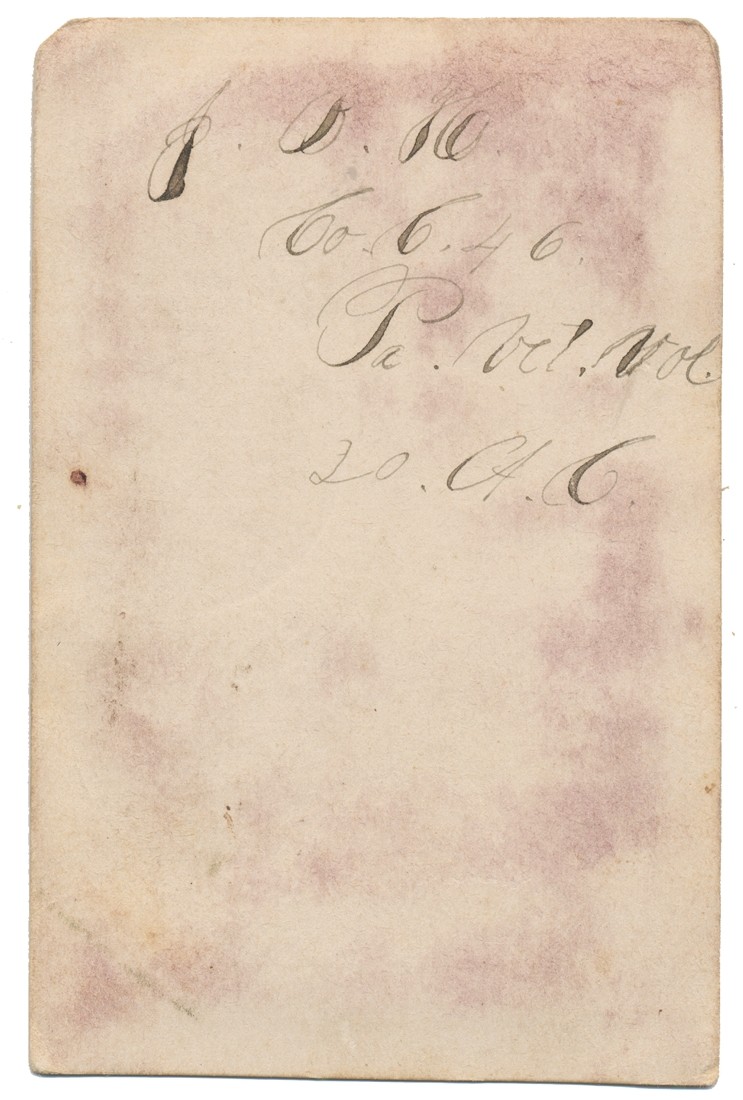 J. D. H.
Co. C. 46.
Pa. Vet. Vol.
20. A. C.